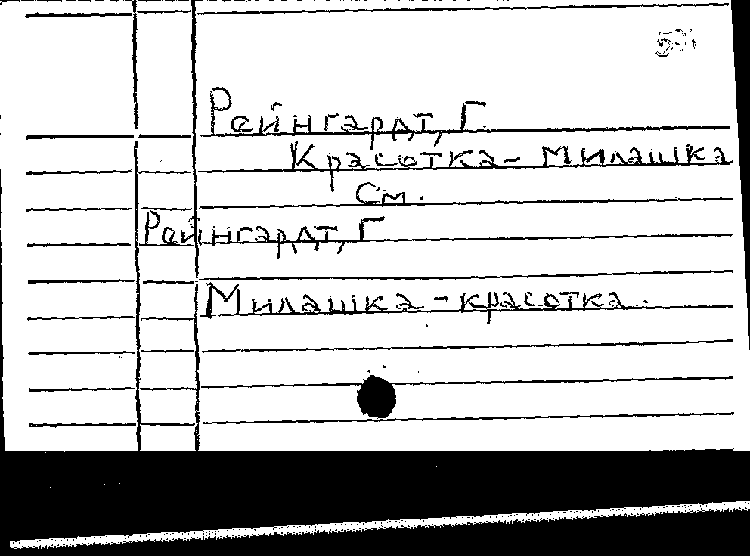 Рейнгардт, Г.
Красотка - милашка
См.
Рейнгардт, Г
Милашка - красотка.